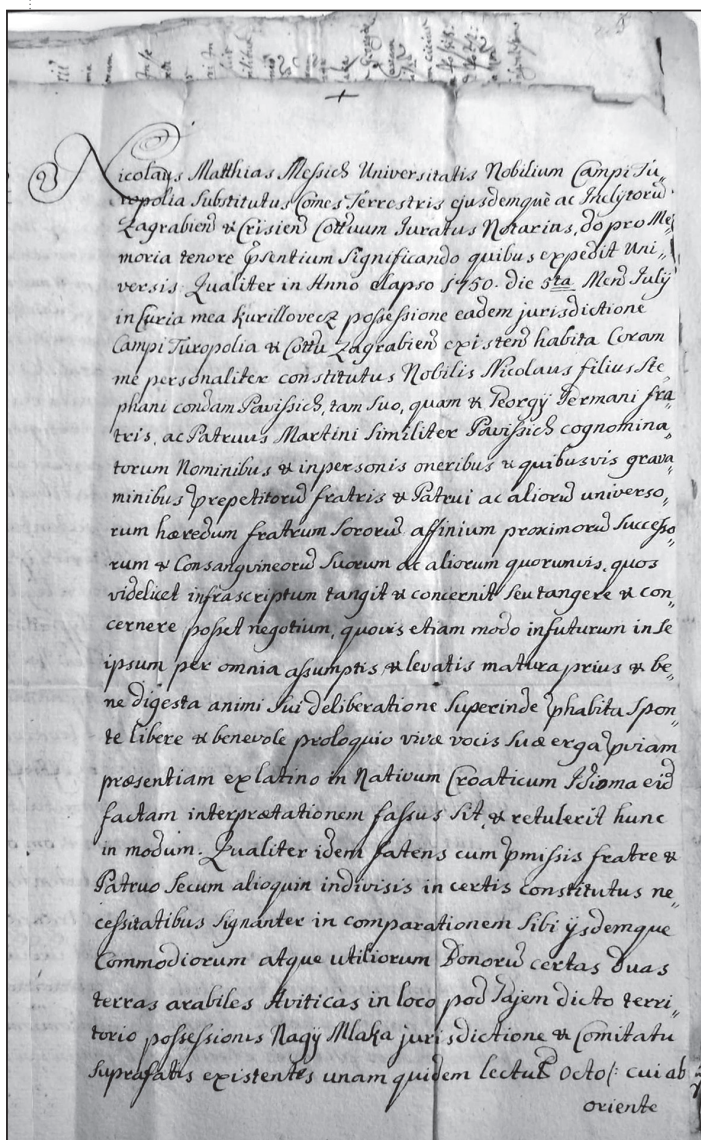 Nicolaus Matthias Messich Universitatis Nobilium Campi Tu„
ropolia Substitutus Comes Terrestris ejusdemque ac Inclytorũ
Zagrabien̄ & Crisien̄ Cottuum Iuratus Notarius, do pro Me„
moria tenore p̄sentium Significando quibus expedit Uni„
versis. Qualiter in Anno elapso 1750. die 5ta Men̄ July
in Curia mea Kurillovecz possessione eadem jurisdictione
Campi Turopolia & Cottu Zagrabien̄ existen̄ habita Coram
me personaliter constitutus Nobilis Nicolaus filius Ste
phani condam Pavissich, tam Suo, quam & Georgy Germani fra
tris, ac Patruus Martini Similiter Pavissich cognomina„
torum Nominibus & in personis oneribus & quibusvis grava„
minibus prepetitorũ fratris & Patrui ac aliorũ universo„
rum hæredum fratrum Sororũ affinium proximorũ Successo
rum & Consangvineorũ Suorum ac aliorum quorumvis, quos
videlicet infrascriptum tangit & concernit Seu tangere & con„
cernere posset negotium, quovis etiam modo in futurum in Se
ipsum per omnia assumptis, & levatis matura prius & be„
ne digesta animi Sui deliberatione Superinde p̄habita Spon„
te libere & benevole proloquio vivæ vocis Suæ erga
præsentiam ex latino in Nativum Croaticum Idioma eid̄
factam interprætationem fassus Sit, & retulerit hunc
in modum. Qualiter idem fatens cum p̄missis fratre &
Patruo Secum alioquin indivisis in certis constitutus ne„
cessitatibus Signanter in comparationem Sibi ijsdemque
Commodiorum atque utiliorum Bonorũ certas duas
terras arabiles Aviticas in loco pod Gajem dicto terri„
torio possessionis Nagy Mlaka jurisdictione & Comitatu
Suprafatis existentes unam quidem octo (: cui ab
oriente